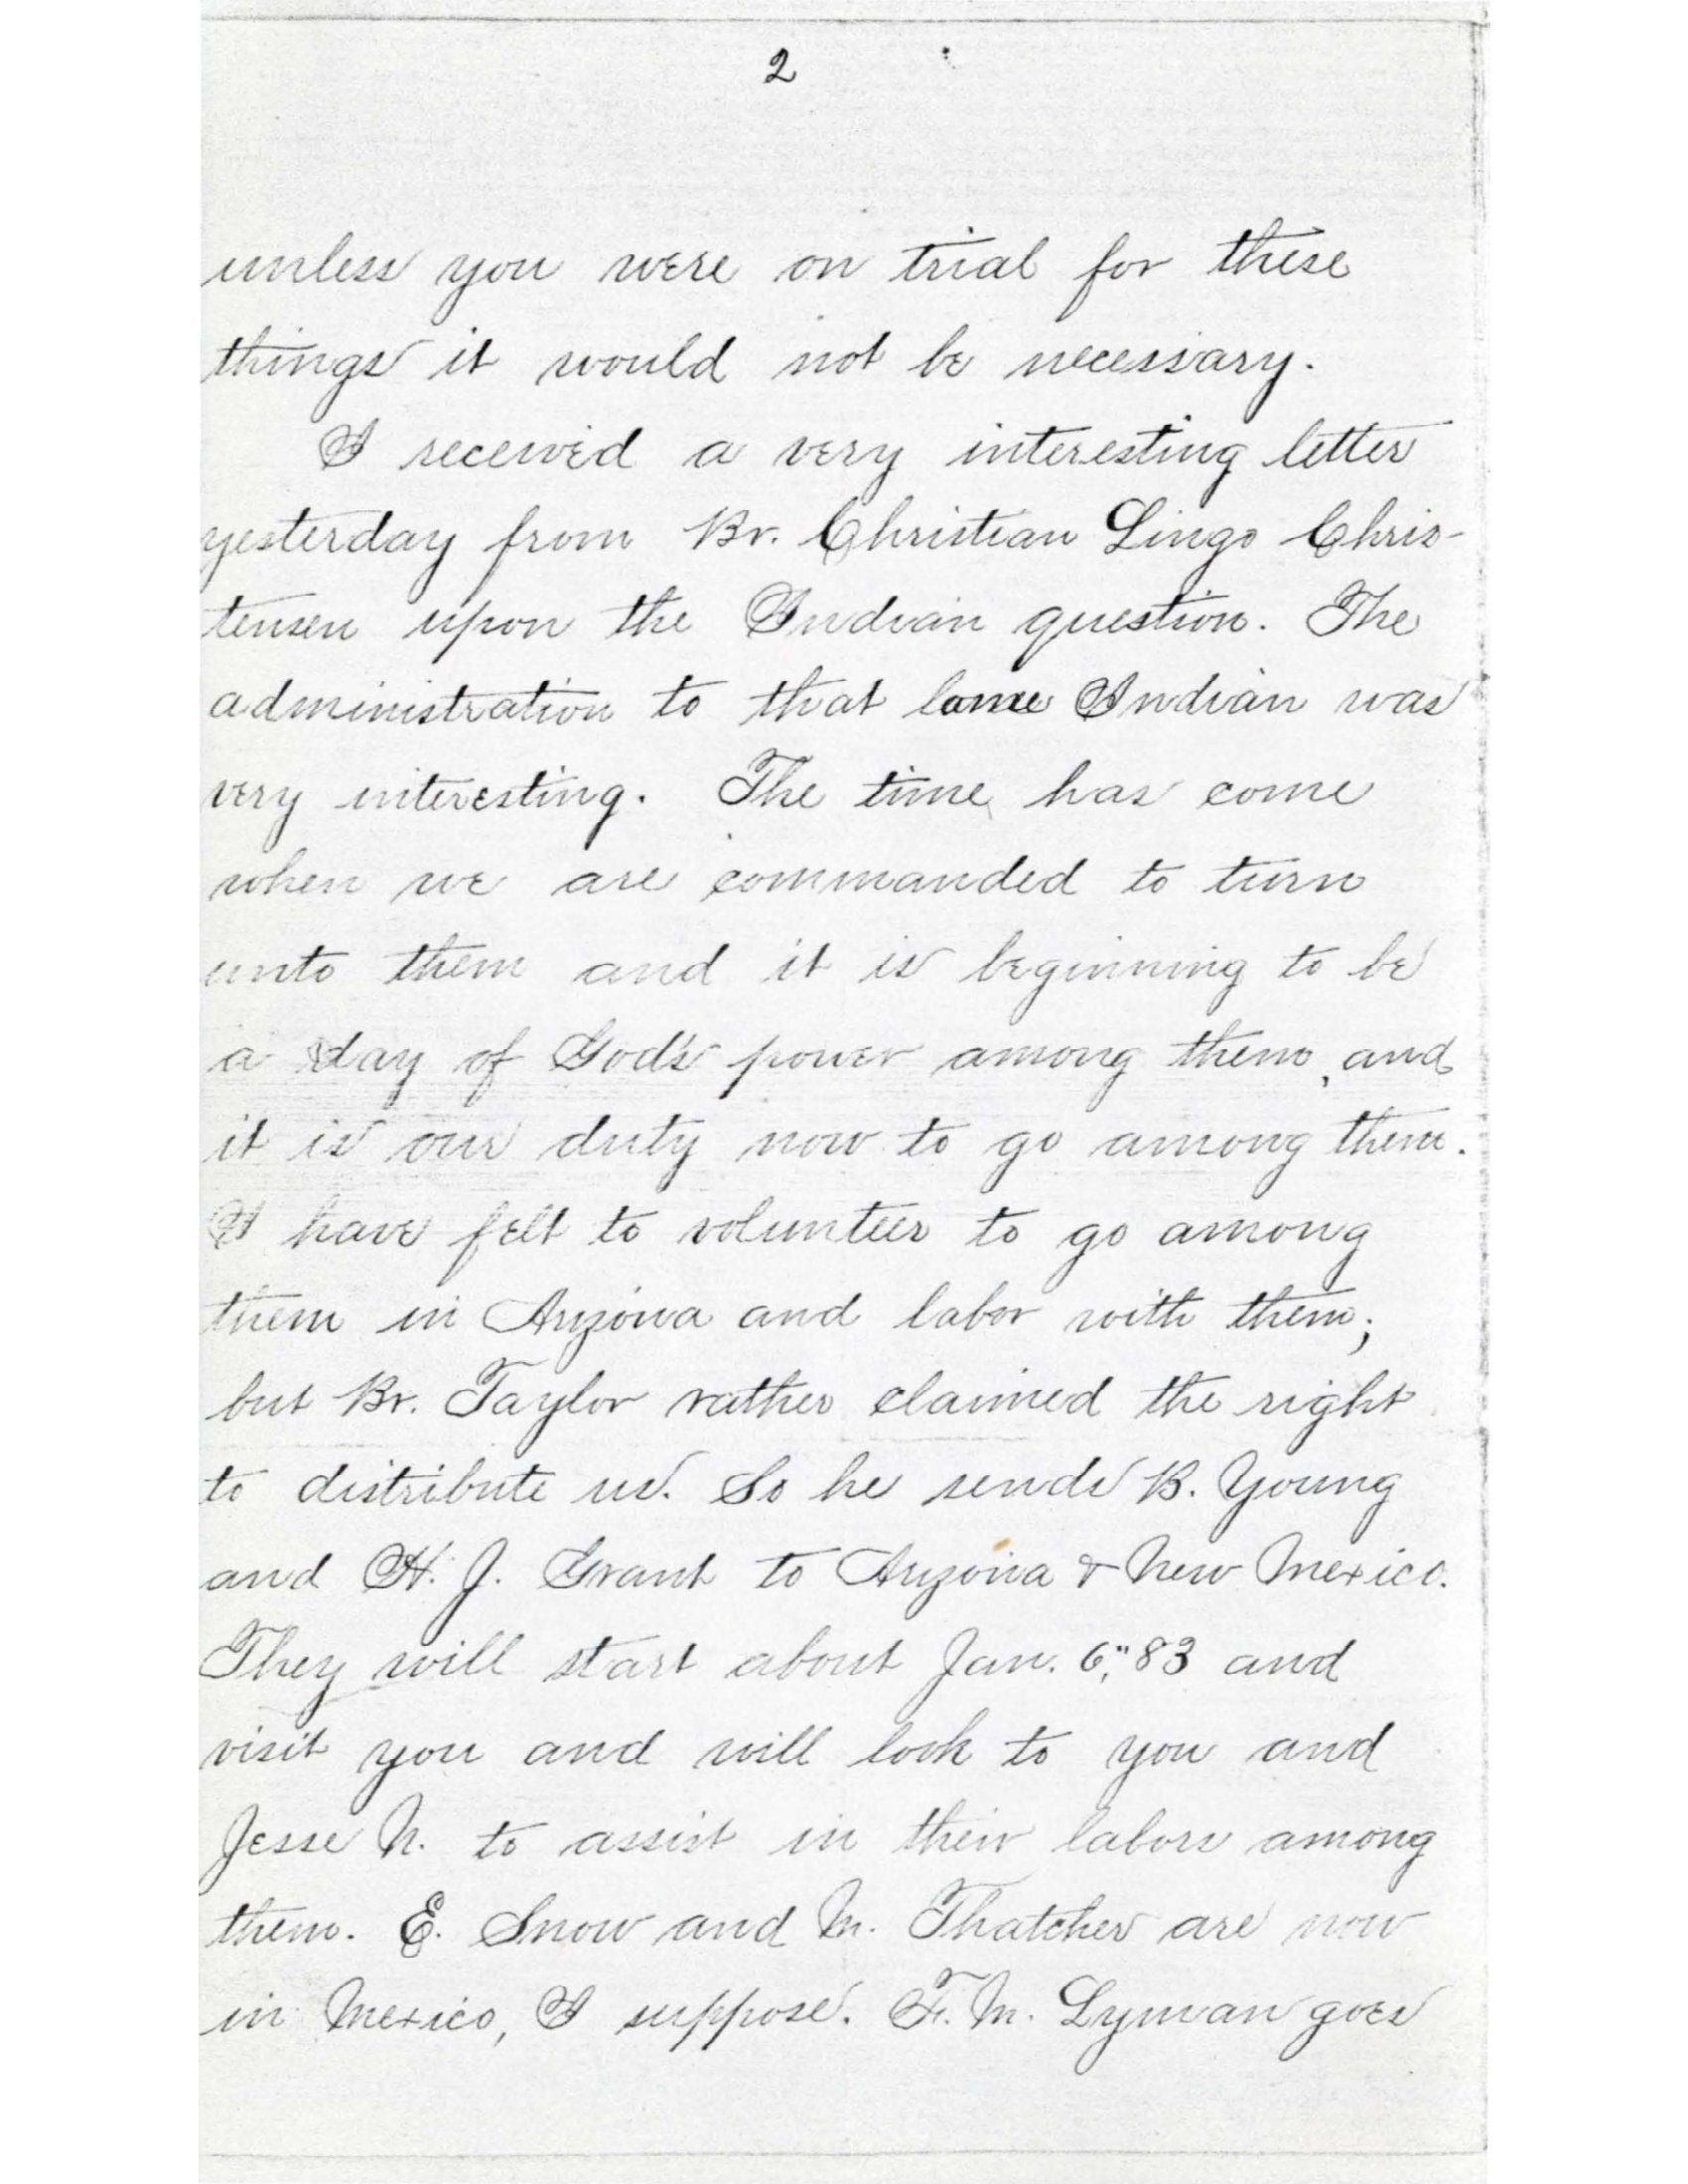 2
unless you were on trial for these
things it would not be necessary.
I received a very interesting letter
yesterday from Br. Christian Lingo Chris-
tensen upon the Indian question. The
administration to that lame Indian was
very interesting. The time has come
when we are commanded to turn
unto them and it is beginning to be
a day of God's power among them, and
it is our duty now to go among them.
I have felt to volunteer to go among
them in Arizona and labor with them;
but Br. Taylor rather claimed the right
to distribute us. So he sends B. Young
and H. J. Grant to Arizona & New Mexico.
They will start about Jan. 6," 83 and
visit you and will look to you and
Jesse N. to assist in their labors among
them. E. Snow and M. Thatcher are now
in Mexico, I suppose. F. M. Lyman goes